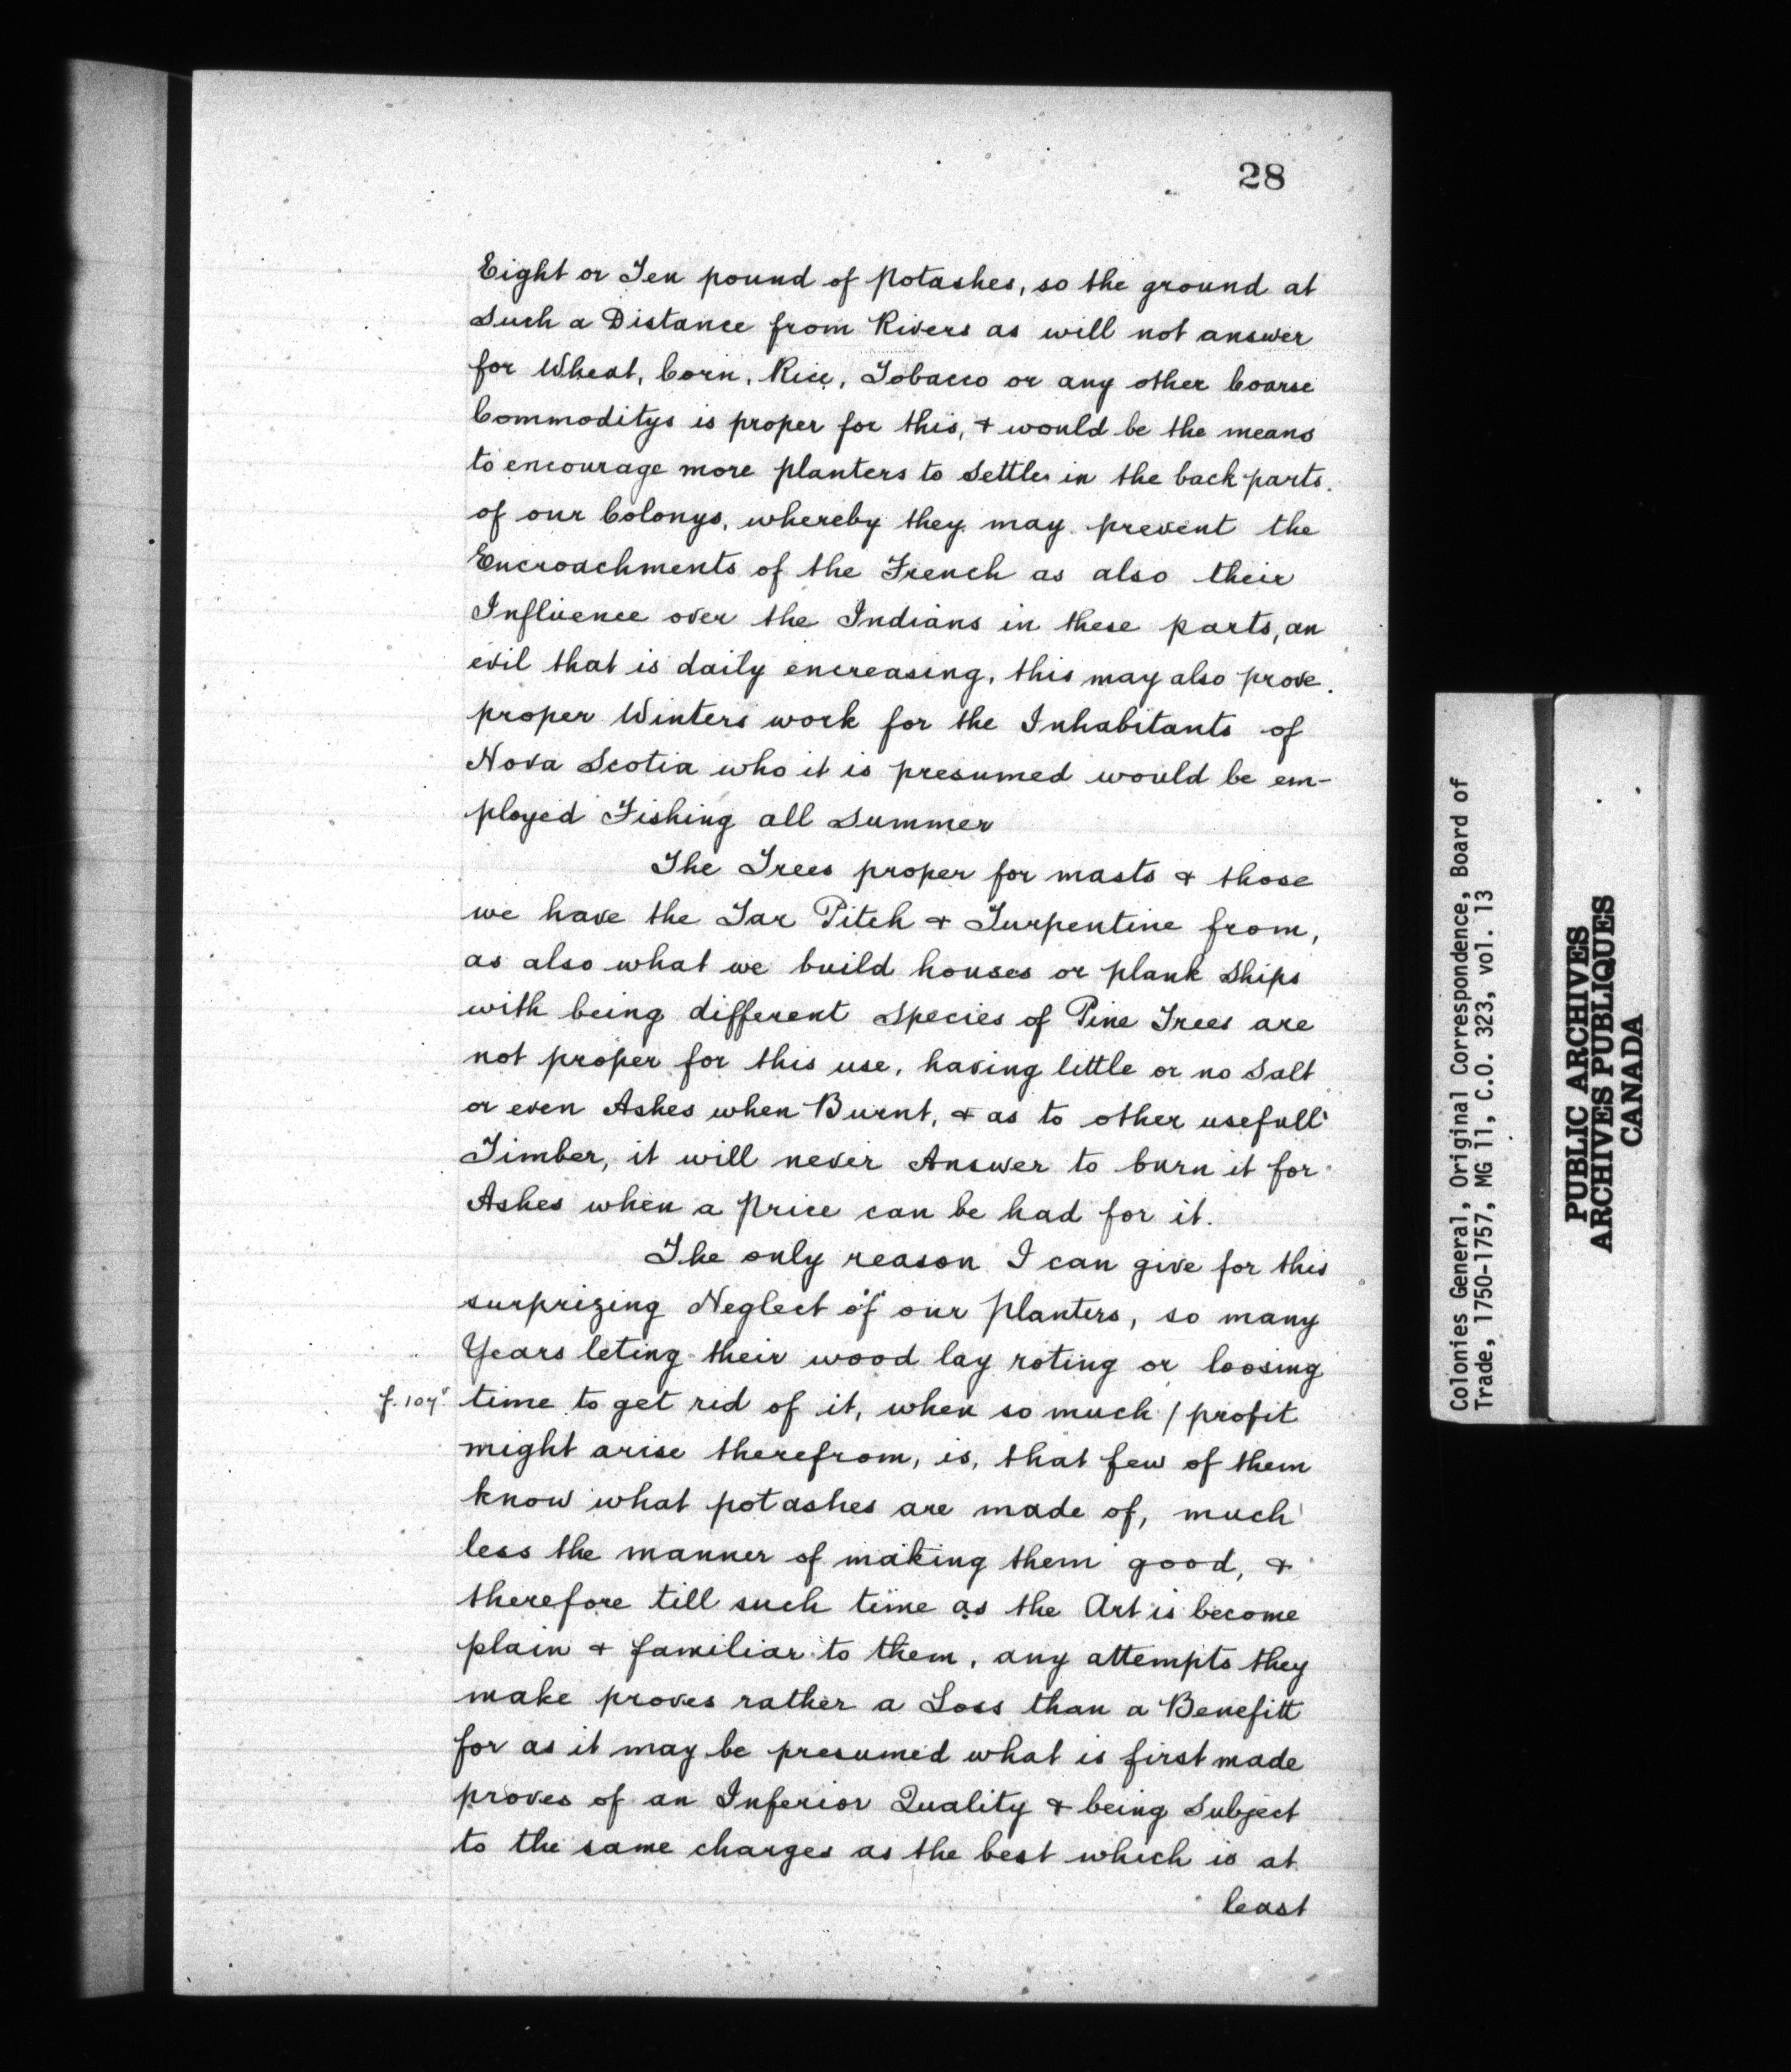 28
Eight or Ten pound of potashes, so the ground at
Such a Distance from Rivers as will not answer
for Wheat, Corn, Rice, Tobacco or any other Coarse
Commoditys is proper for this, & would be the means
to encourage more planters to Settle in the back parts
of our Colonys, whereby they may prevent the
Encroachments of the French as also their
Influence over the Indians in these parts, an
evil that is daily encreasing, this may also prove
proper Winters work for the Inhabitants of
Nova Scotia who it is presumed would be em-
ployed Fishing all Summer
The Trees proper for masts & those
we have the Tar Pitch & Turpentine from,
as also what we build houses or plank Ships
with being different Species of Pine Trees are
not proper for this use, having little or no Salt
or even Ashes when Burnt, & as to other usefull
Timber, it will never Answer to burn it for
Ashes when a price can be had for it.
The only reason I can give for this
surprizing Neglect of our planters, so many
Years leting their wood lay roting or loosing
f. 107v time to get rid of it, when so much / profit
might arise therefrom, is, that few of them
know what potashes are made of, much
less the manner of making them good, &
therefore till such time as the Art is become
plain & familiar to them, any attempts they
make proves rather a Loss than a Benefitt
for as it may be presumed what is first made
proves of an Inferior Quality & being Subject
to the same charges as the best which is at
least
Colonies General, Original Correspondence, Board of
Trade, 1750-1757, MG 11, C.O. 323, vol. 13
PUBLIC ARCHIVES
ARCHIVES PUBLIQUES
CANADA